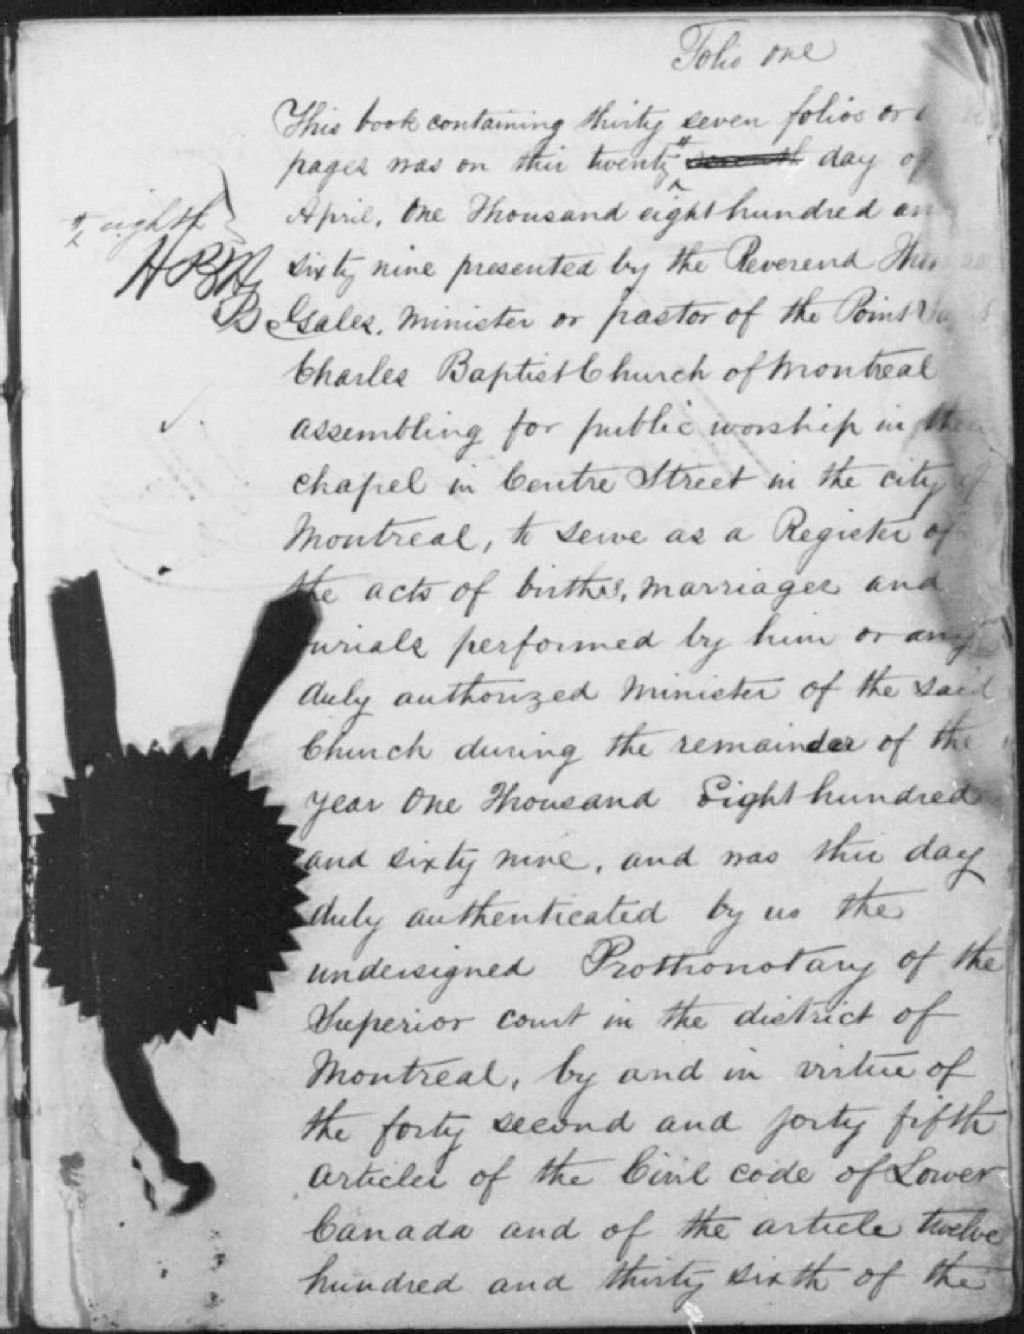 Folio one
This book containing thirty seven folios or
pages was on this twenty # seventh day of
April, One Thousand eight hundred and
# eighth
sixty nine presented by the Reverend Thomas
Gales, Minister or pastor of the Point
Charles Baptist Church of Montreal
assembling for public worship in their
chapel in Centre Street in the city of
Montreal, to serve as a Register of
the acts of births, marriages and
burials performed by him or any
duly authorized Minister of the said
Church during the remainder of the
year One Thousand Eight hundred
and sixty nine, and was this day
duly authenticated by us the
undersigned Prothonotary of the
Superior court in the district of
Montreal, by and in virtue of
the forty second and forty fifth
articles of the Civil code of Lower
Canada and of the article twelve
hundred and thirty sixth of the